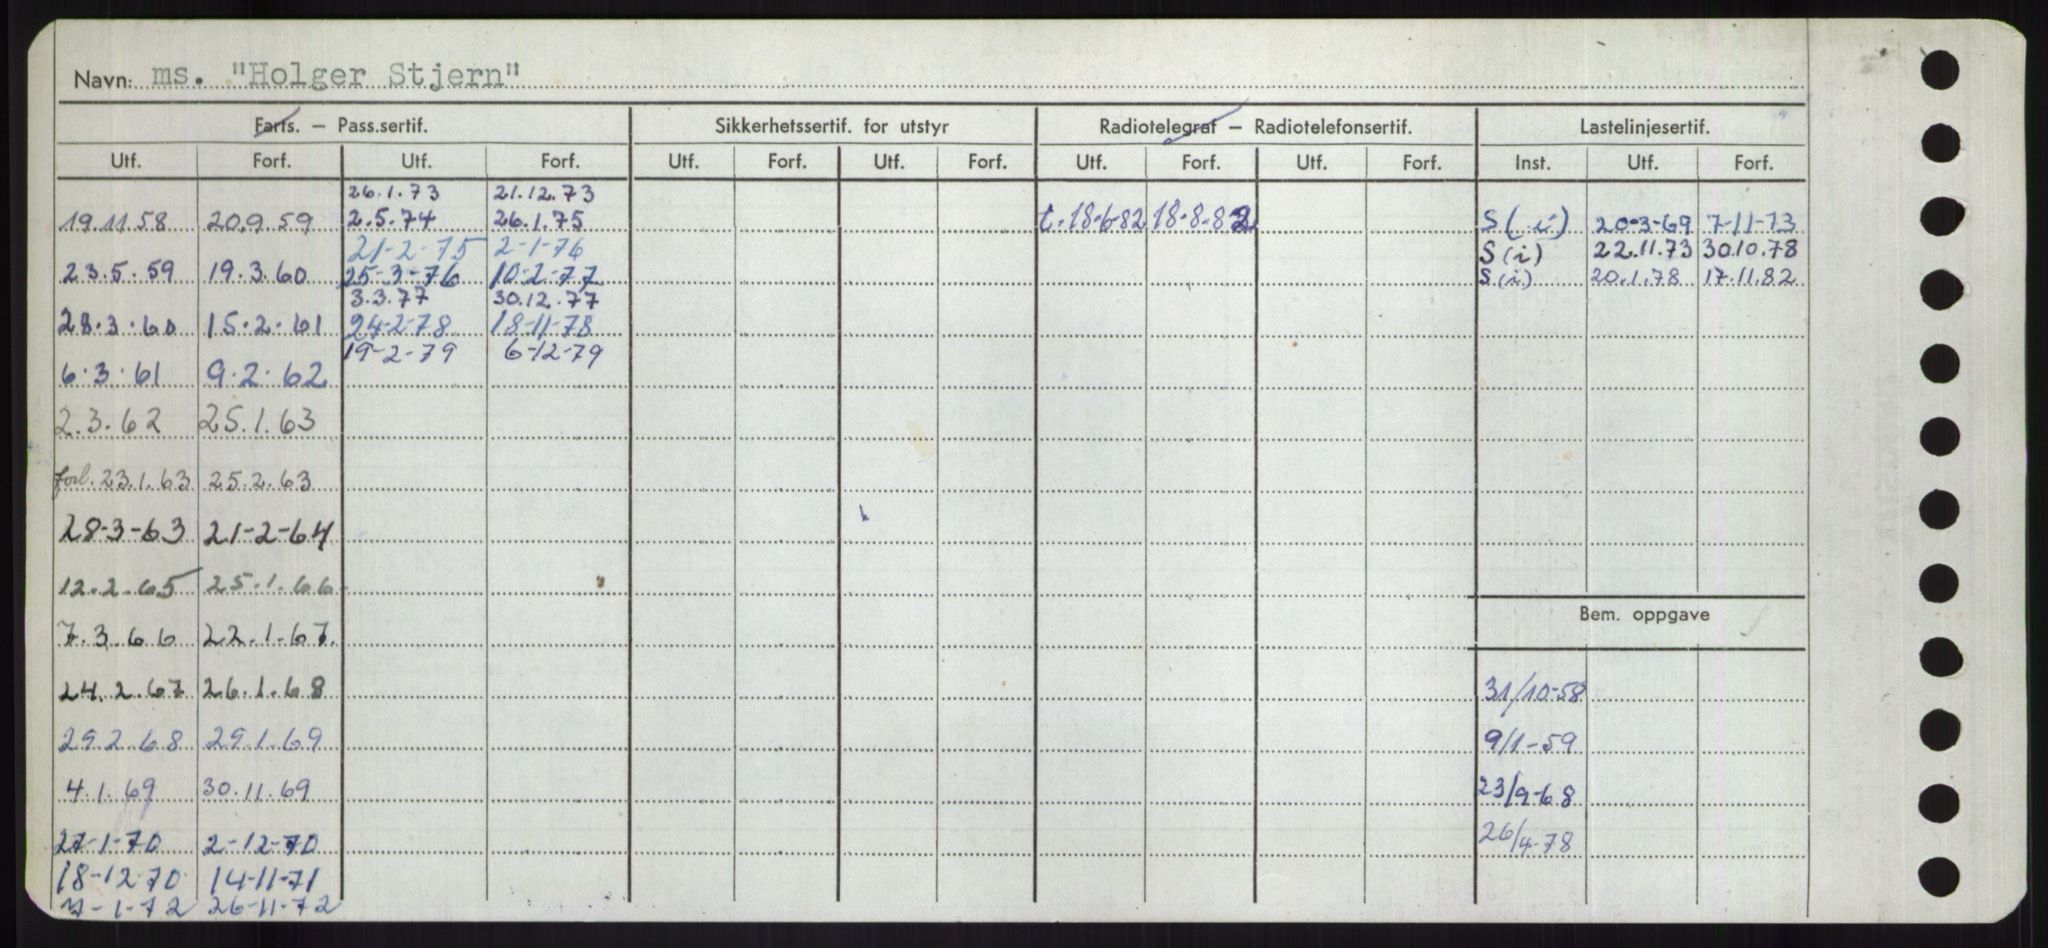 Navn: ms. "Holger Stjern"
Farts. – Pass.sertif. Sikkerhetssertif. for utstyr Radiotelegraf – Radiotelefonsertif. Lastelinjesertif.
Utf. Forf. Utf. Forf. Utf. Forf. Utf. Forf. Utf. Forf. Utf. Forf. Inst. Utf. Forf.
26.1.73 21.12.73
19.11.58 20.9.59 2.5.74 26.1.75 t.18-6-82 18-8-82 S(i) 20-3-69 7-11-73
21-2-75 2-1-76 S(i) 22.11.73 30.10.78
23.5.59 19.3.60 25-3-76 10-2-77 S(i) 20.1.78 17.11.82
3.3.77 30.12.77
28.3.60 15.2.61 24-2-78 18-11-78
19-2-79 6-12-79
6.3.61 9.2.62
2.3.62 25.1.63
forl. 23.1.63 25.2.63
28-3-63 21-2-64
12.2.65 25.1.66
Bem. oppgave
7.3.66 22.1.67.
24.2.67 26.1.68 31/10-58
29.2.68 29.1.69 9/1-59
4.1.69 30.11.69 23/9-68
27-1-70 2-12-70 26/4-78
18-12-70 14-11-71
7-1-72 26-11-72